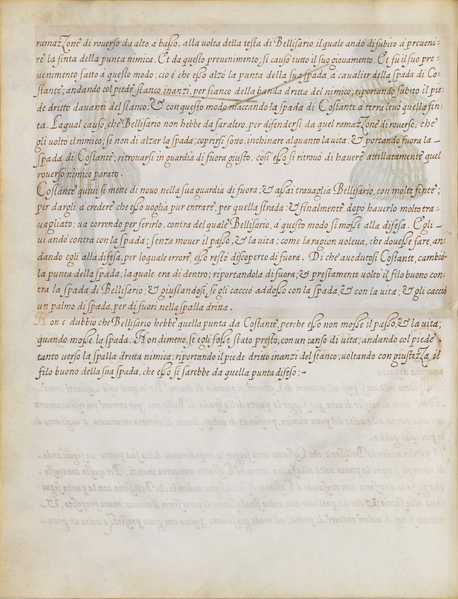 ramazzone di roverso da alto, a basso, alla volta della testa di Bellisario, il quale andò di subito a preveni-
re la finta della punta nimica. Et da questo prevenimento, si causò tutto il suo giovamento. Et fu il suo pre-
venimento fatto a questo modo; cio è che esso alzò la punta della sua spada a cavalier della spada di Co-
stante; andando col piede stanco inanzi, per fianco della banda dritta del nimico, riportando subito il pie-
de dritto davanti del stanco, & con questo modo maccando la spada di Costante a terra levò quella fin-
ta. La qual causò, che Bellisario non hebbe da far altro, per difendersi da quel ramazzone di roverso, che
gli voltò il nimico; se non di alzar la spada; coprirsi sotto, inchinar alquanto la vita; & portando fuora la
Spada di Costante; ritrovarsi in guardia di fuora giusto. così esso si ritrovò di havere attillatamente quel
roverso nimico parato.
Costante quivi se mette di novo nella sua guardia di fuora; & assai travaglia Bellisario, con molte finte;
per dargli à credere che esso voglia pur entrare, per quella strada: & finalmente, dopò haverlo molto tra-
vagliato; và correndo per ferirlo. contra del quale Bellisario, à questo modo si mosse alla difesa. Egli
vi andò contra con la spada; senza mover il passo, & la vita; come la ragion voleva, che dovesse fare, an-
dando egli alla difesa, per lo quale errore, esso restò discoperto di fuora. Di che avedutosi Costante, cambiò
la punta della spada, la quale era di dentro; riportandola di fuora; & prestamente voltò il filo buono con-
tra la spada di Bellisario; & giustandosi, se gli cacciò addosso con la spada, & con la vita; & gli cacciò
un palmo di spada, per di fuori nella spalla dritta.
Non è dubbio che Bellisario hebbe quella punta da Costante, perche esso non mosse il passo, & la vita;
quando mosse la spada. Nondimeno, se egli fosse stato presto, con un tanso di vita; andando col piede
tanto verso la spalla dritta nimica; riportando il piede dritto inanzi del stanco; voltando con giustezza il
filo buono della sua spada, che esso si sarebbe da quella punta difeso:~